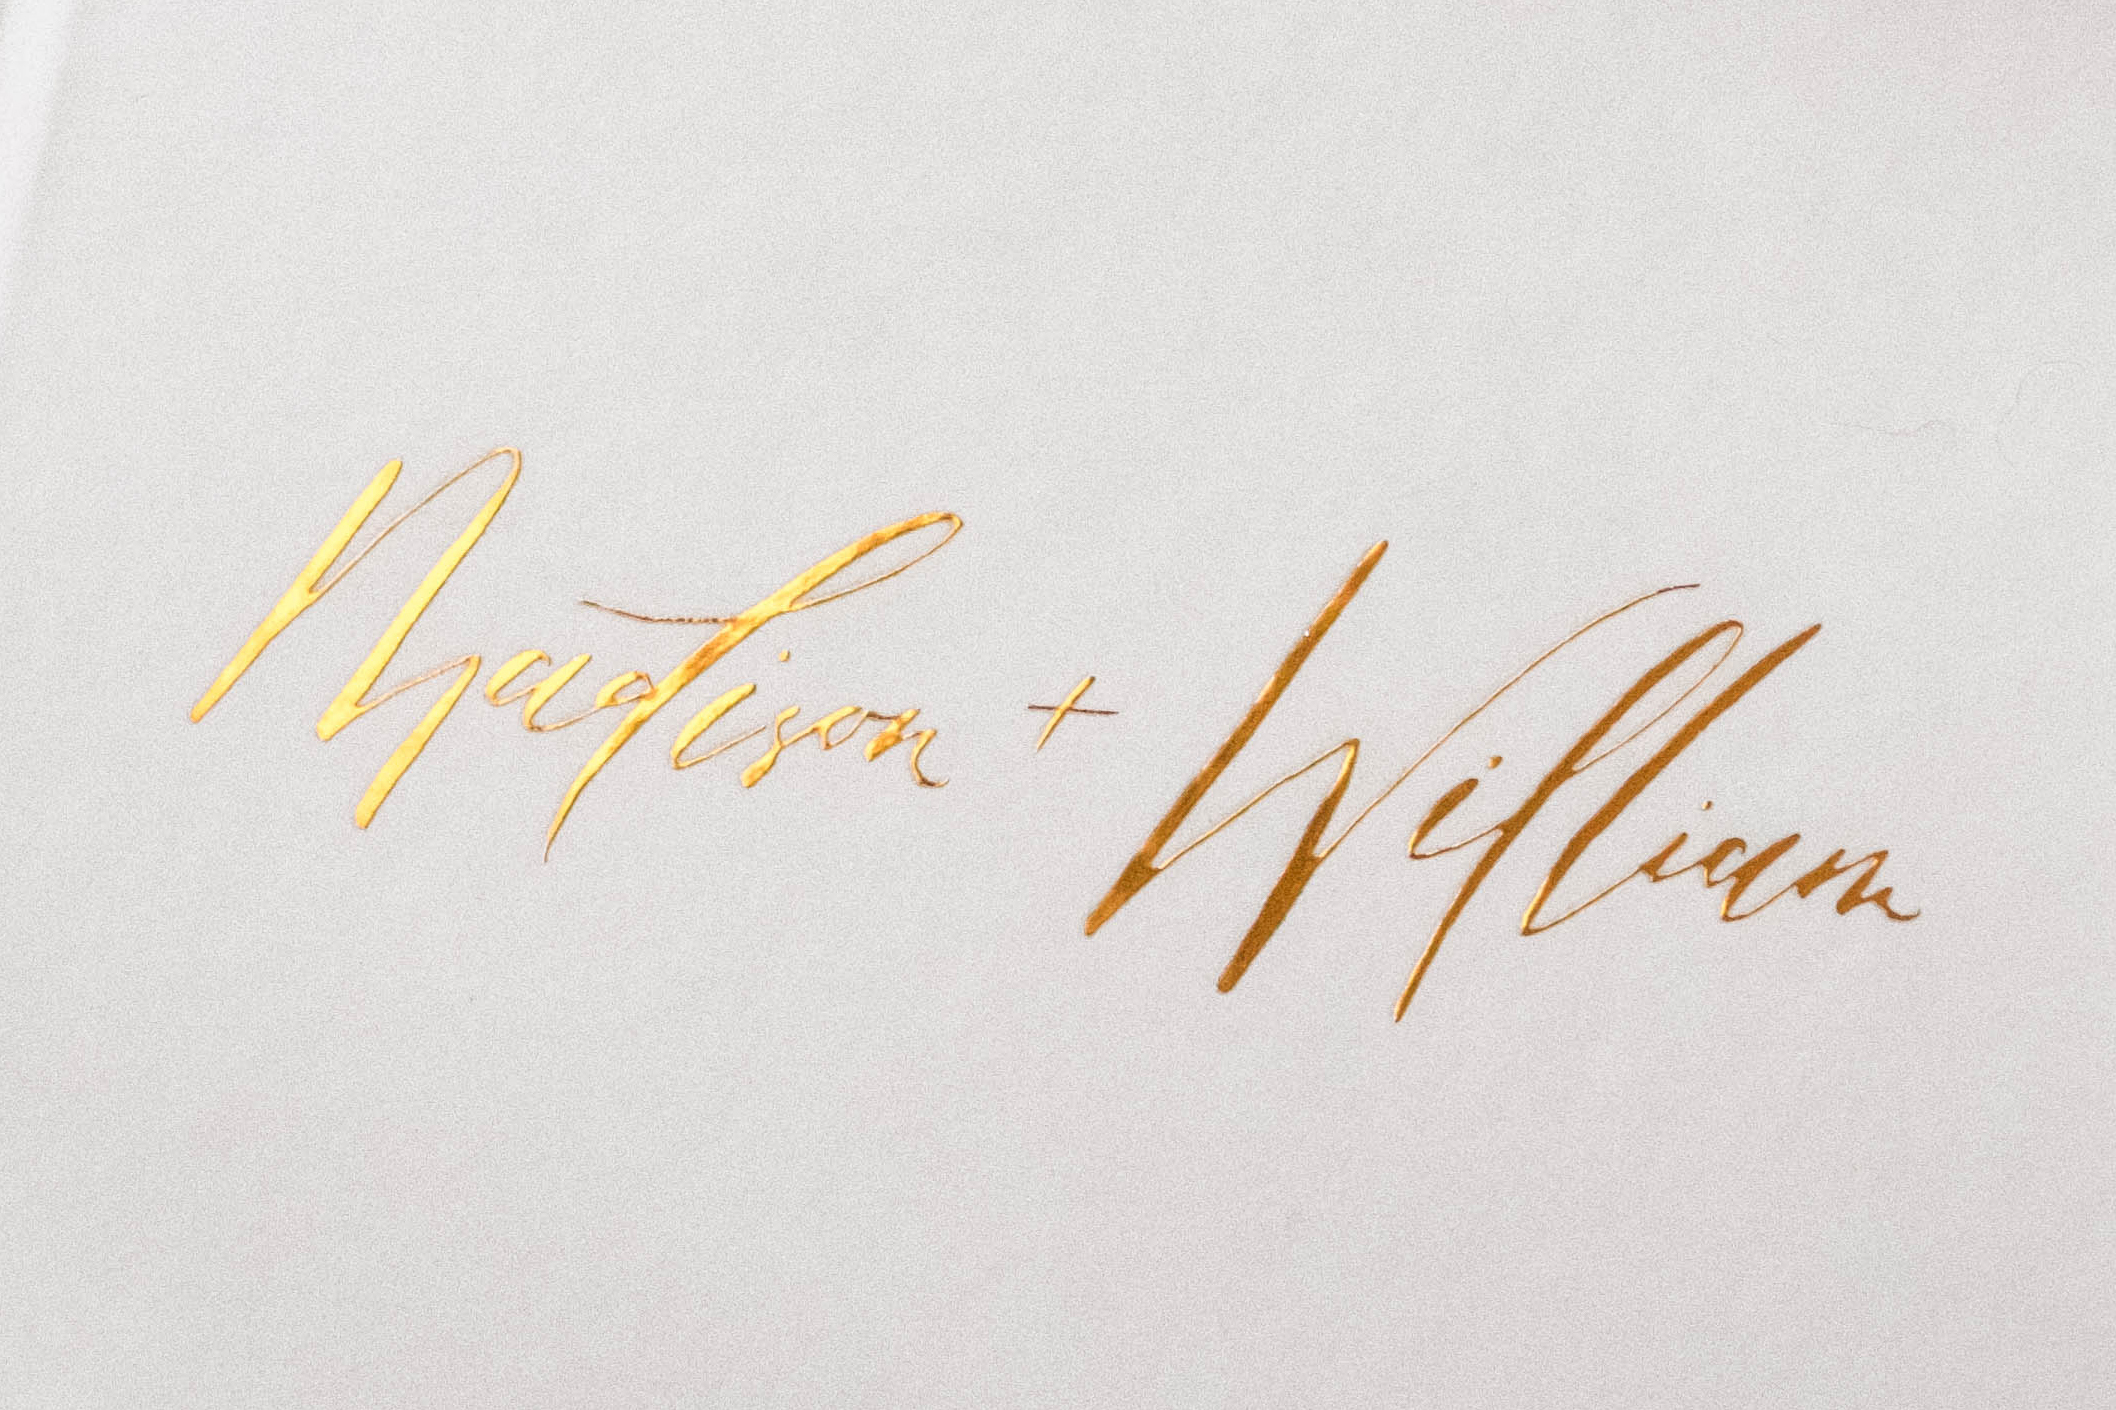 Madison + William